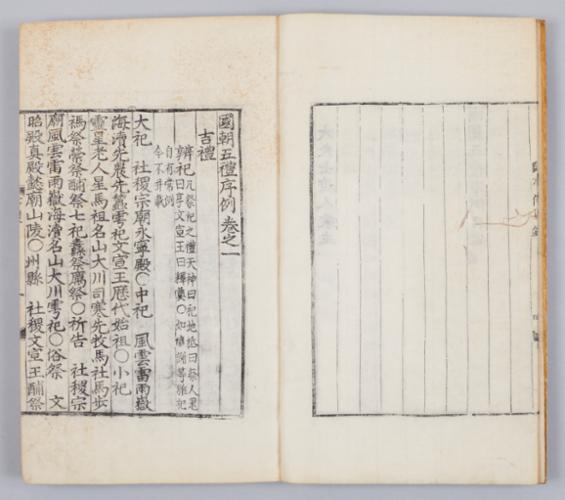 國朝五禮序例卷之一
吉禮
辨祀 凡祭祀之禮天神曰祀地祇曰祭人鬼
曰享文宣王曰釋奠○如等雜祀
自有常例
今不幷載
大祀 社稷宗廟永寧殿○中祀 風雲雷雨嶽
海瀆先農先蠶雩祀文宣王歷代始祖○小祀
靈星老人星馬祖名山大川司寒先牧馬社馬步
禡祭禜祭酺祭七祀纛祭厲祭○祈告 社稷宗
廟風雲雷雨嶽海瀆名山大川雩祀○俗祭 文
昭殿真殿懿廟山陵○州縣 社稷文宣王酺祭